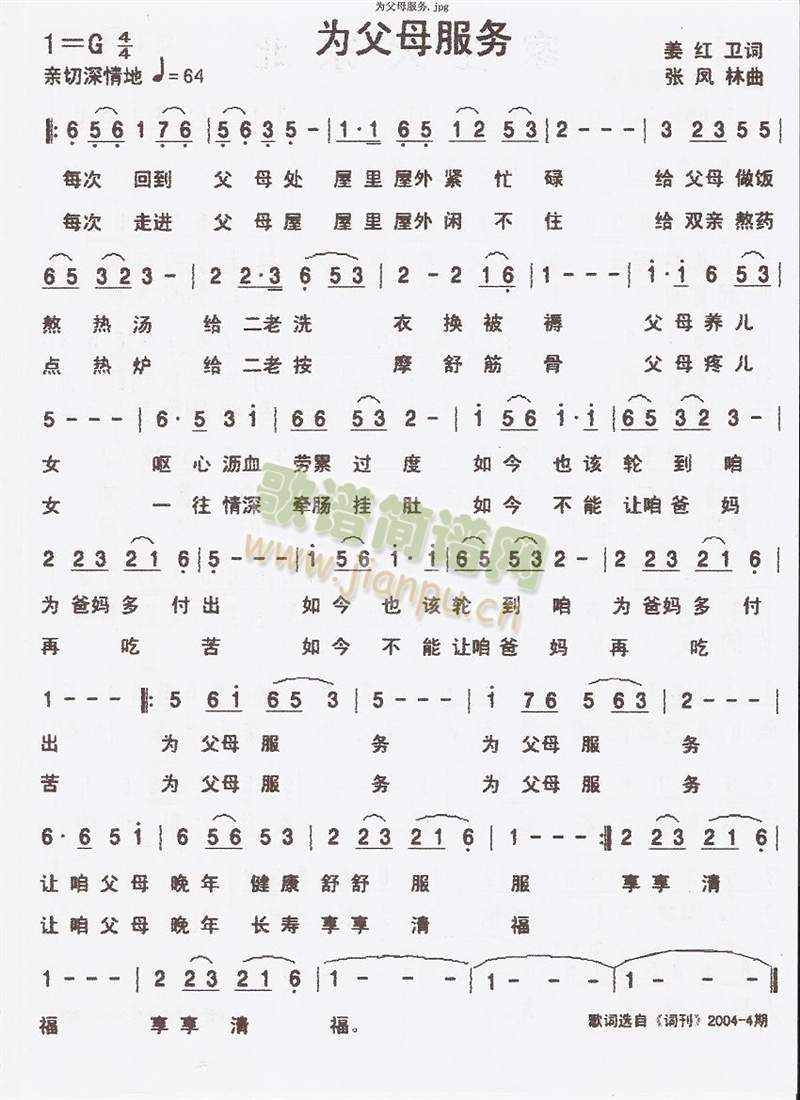 为父母服务.jpg
为父母服务
1=G 4/4
姜红卫词
亲切深情地 ♩=64
张凤林曲
𝄆 6 5 6 1 7 6 | 5 6 3 5 - | 1· 1 6 5 1 2 5 3 | 2 - - - | 3 2 3 5 5
每次 回到 父母处 屋里屋外紧忙碌 给父母做饭
每次 走进 父母屋 屋里屋外闲不住 给双亲熬药
6 5 3 2 3 - | 2 2·3 6 5 3 | 2 - 2 1 6 | 1 - - - | i· i 6 5 3
熬热汤 给二老洗 衣换被褥 父母养儿
点热炉 给二老按 摩舒筋骨 父母疼儿
5 - - - | 6· 5 3 i | 6 6 5 3 2 - | i 5 6 i· i | 6 5 5 3 2 -
女 呕心沥血 劳累过度 如今也该轮到咱
女 一往情深 牵肠挂肚 如今不能让咱爸妈
2 2 3 2 1 6 | 5 - - - | i 5 6 i· i | 6 5 5 3 2 - | 2 2 3 2 1 6
为爸妈多付出 如今也该轮到咱 为爸妈多付
再吃苦 如今不能让咱爸妈再吃
1 - - - 𝄆 5 6 i 6 5 3 | 5 - - - | i 7 6 5 6 3 | 2 - - - |
出 为父母服务 为父母服务
苦 为父母服务 为父母服务
6· 6 5 i | 6 5 6 5 3 | 2 2 3 2 1 6 | 1 - - - 𝄇 2 2 3 2 1 6
让咱父母晚年健康舒舒服服 享享清
让咱父母晚年长寿享享清福
1 - - - | 2 2 3 2 1 6 | 1 - - - | 1 - - - | 1 - - - ‖
福 享享清福。
歌词选自《词刊》2004-4期
歌谱简谱网
www.jianpu.cn